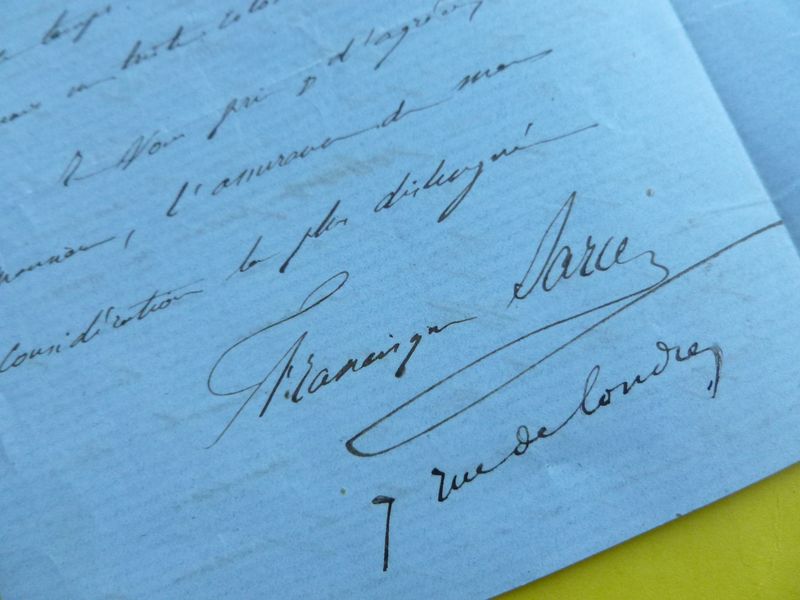 temps.
Je vous prie d'agréer,
monsieur, l'assurance de ma
considération la plus distinguée
Francisque Sarcey
7 rue de Londres,